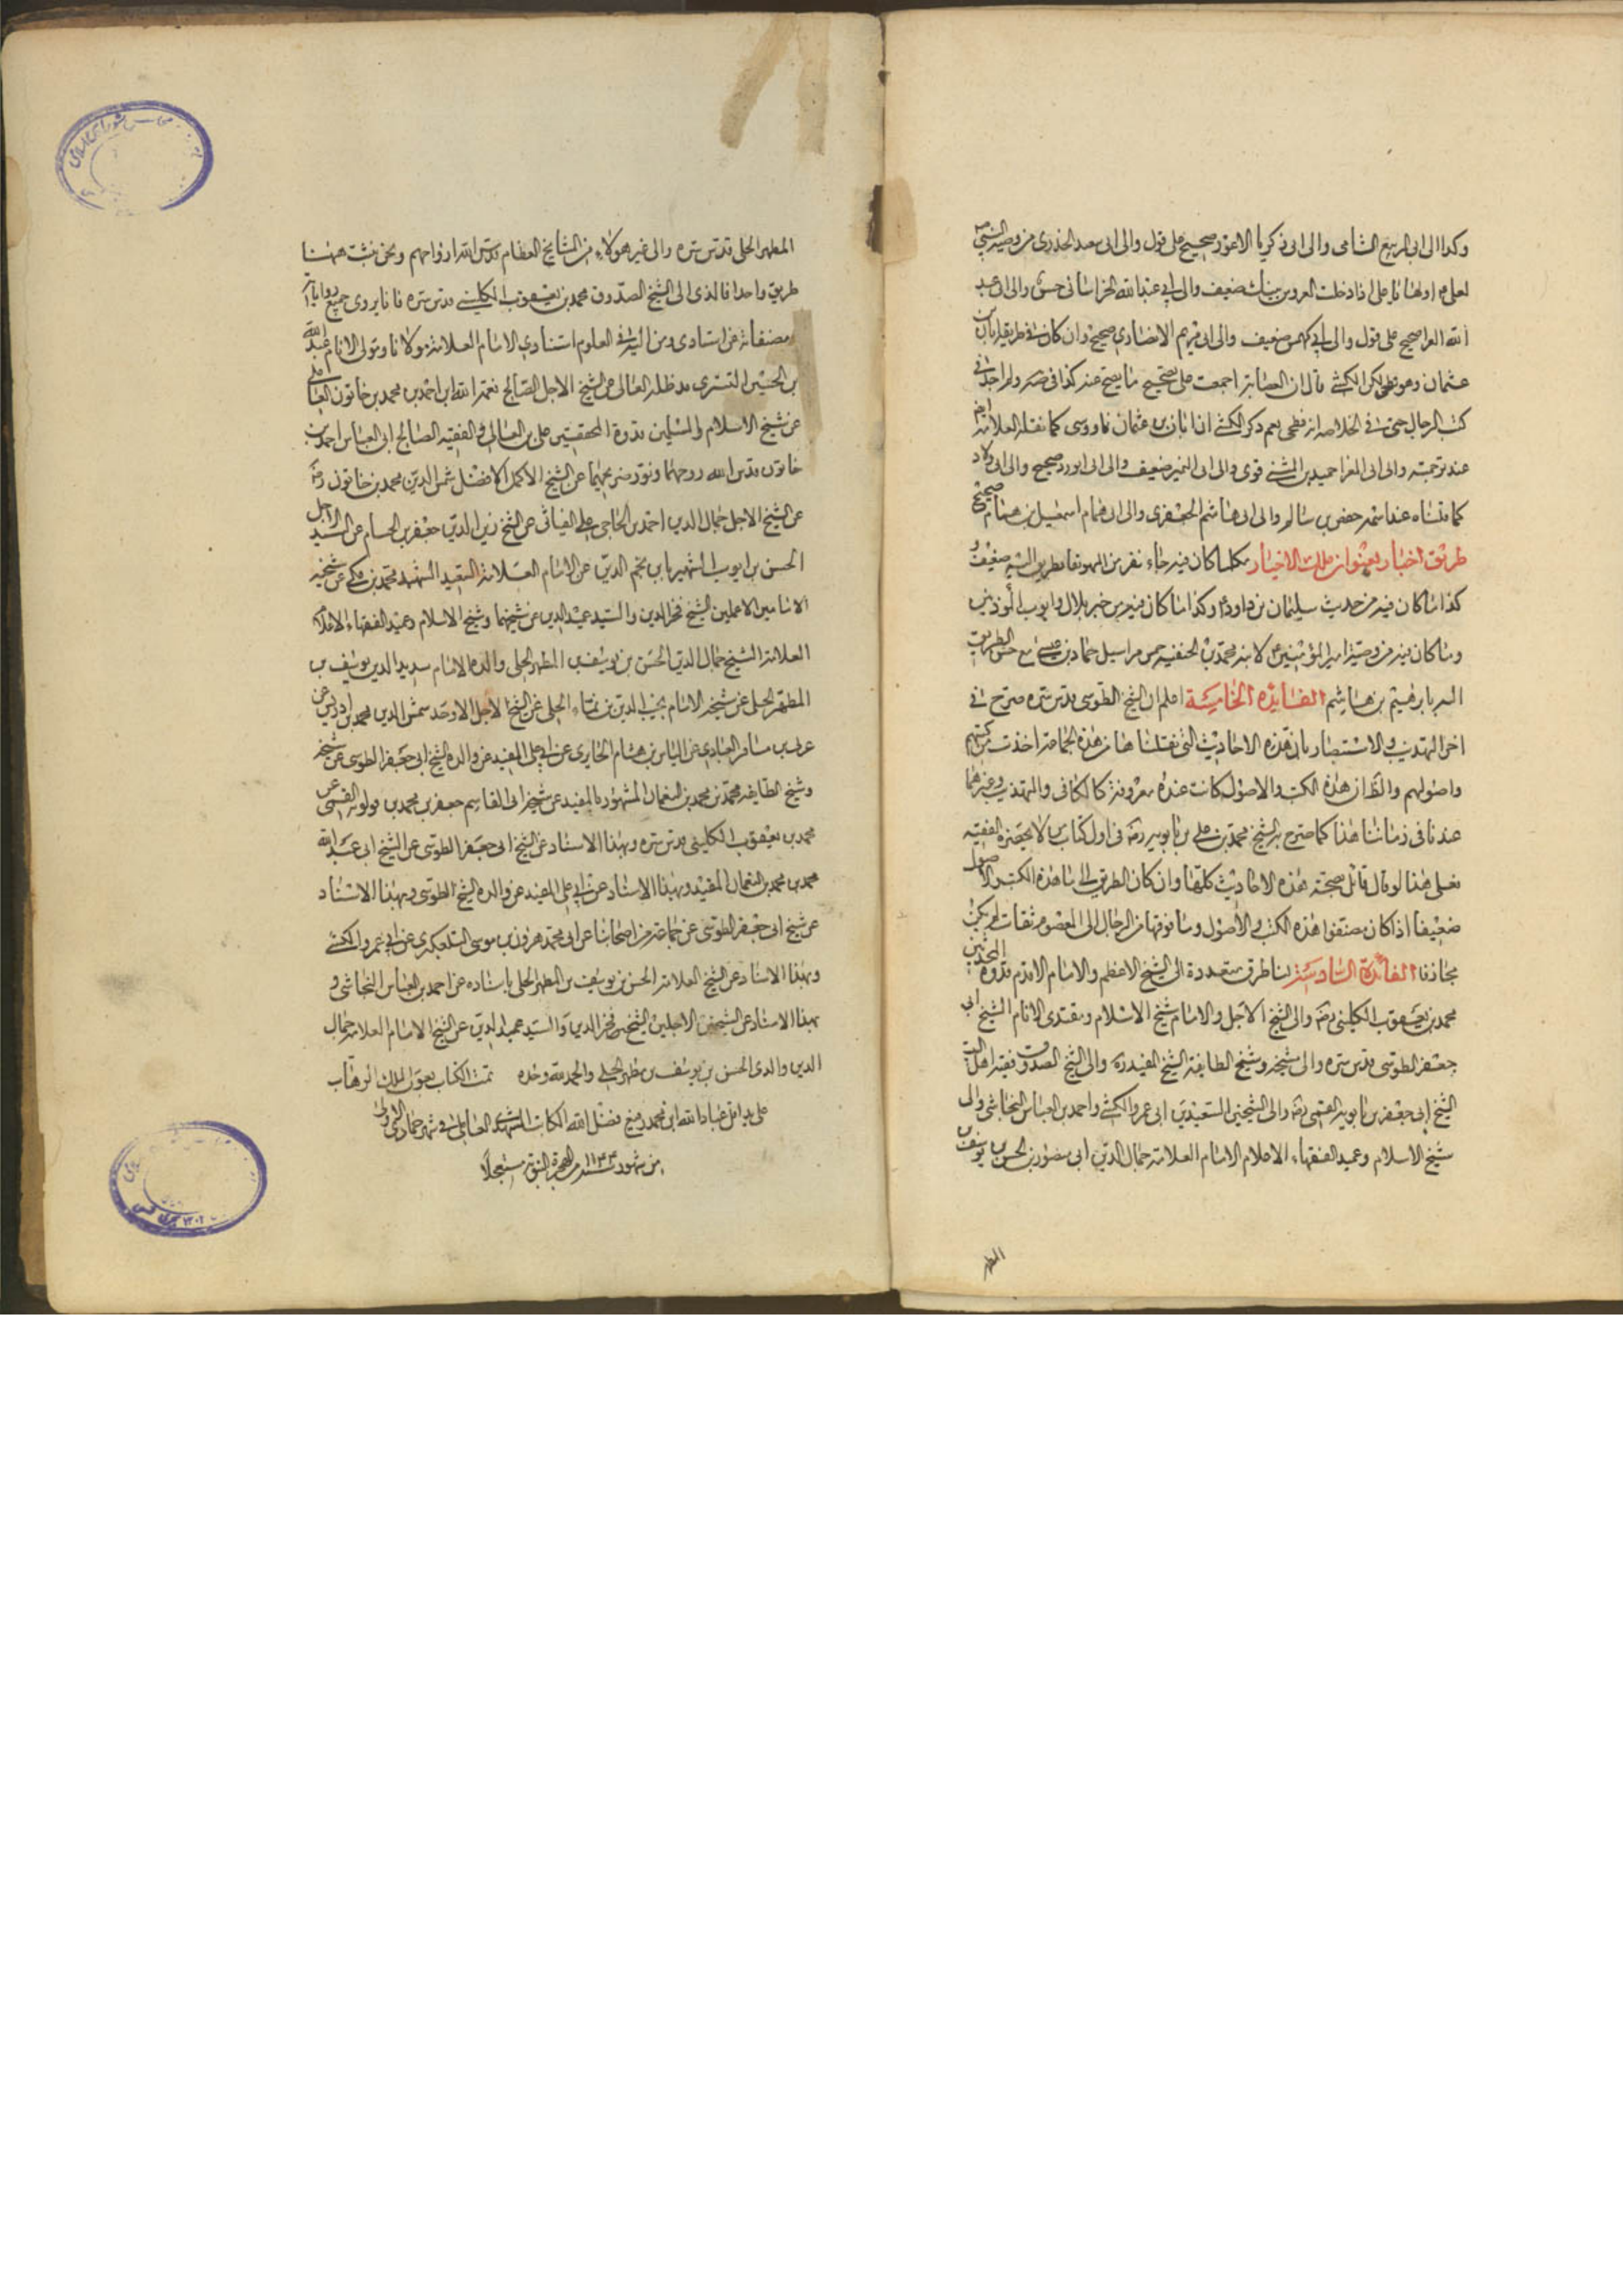 وكذا الى ابى الربيع الشامى والى ابى زكريا الاعور صحيح على قول والى ابى سعيد الخدرى من وصية النبي ص
لعلى ع اولها يا على اذا دخلت العروس بيتك ضعيف والى ابى عبدالله الخراسانى حسن والى ابى عبد
الله الفرا صحيح على قول والى ابى كهمس ضعيف والى ابى مريم الانصارى صحيح وان كان فى طريقه ابان بن
عثمان وهو فطحى لكن الكشى قال ان العصابة اجمعت على تصحيح ما يصح عنه كذا فى صه ولم اجد فى
كتب الرجال حتى فى الخلاصة انه فطحى نعم ذكر الكشى ان ابان بن عثمان ناووسى كما نقله العلامة ايضا
عند ترجمته والى ابى المغرا حميد بن المثنى قوى والى ابى النمير ضعيف والى ابى الورد صحيح والى ابى ولاد
كما قلناه عند اسمه حفص بن سالم والى ابى هاشم الجعفرى والى ابى همام اسمعيل بن همام صحيح
طريق اخبار بعنوان تلك الاخبار فكلما كان فيه جاء نفر من اليهود فطريق اليه ضعيف و
كذا ما كان فيه من حديث سليمان بن داود ع وكذا ما كان فيه من خبر بلال وايوب المؤذنين
وما كان فيه من وصية امير المؤمنين ع لابنه محمد بن الحنفية فمن مراسيل حماد بن عيسى مع حسن الطريق
اليه بابرهيم بن هاشم الفائدة الخامسة اعلم ان الشيخ الطوسى قدس سره صرح فى
اخر التهذيب والاستبصار بان هذه الاحاديث التى نقلناها من هذه الجماعة اخذت من كتبهم
واصولهم والظ ان هذه الكتب والاصول كانت عنده معروفة كالكافى والتهذيب وغيرهما
عندنا فى زماننا هذا كما صرح به الشيخ محمد بن على بن بابويه ره فى اول كتاب من لا يحضره الفقيه
فعلى هذا لو قال قائل بصحة هذه الاحاديث كلها وان كان الطريق الى هذه الكتب والاصول
ضعيفا اذا كان مصنفوا هذه الكتب والاصول وما فوقها من الرجال الى المعصوم ثقات لم يكن
مجازفا الفائدة السادسة لنا طرق متعددة الى الشيخ الاعظم والامام الاقدم قدوة المحدثين
محمد بن يعقوب الكلينى ره والى الشيخ الاجل والامام شيخ الاسلام ومقتدى الانام الشيخ ابى
جعفر الطوسى قدس سره والى شيخه وشيخ الطايفة الشيخ المفيد ره والى الشيخ الصدوق فقيه اهل البيت
الشيخ ابى جعفر بن بابويه القمى ره والى الشيخين السعيدين ابى عمرو الكشى واحمد بن العباس النجاشى والى
شيخ الاسلام وعميد الفقهاء الاعلام الامام العلامة جمال الدين ابى منصور بن الحسن بن يوسف بن
المطهر
المطهر الحلى قدس سره والى غير هولاء من المشايخ العظام قدس الله ارواحهم ونحن نثبت ههنا
طريقا واحدا فالذى الى الشيخ الصدوق محمد بن يعقوب الكلينى قدس سره فانا نروى جميع رواياته
ومصنفاته عن استادى ومن اليه فى العلوم استنادى الامام العلامة مولانا ومولى الانام عبد الله
بن الحسين التسترى مد ظله العالى عن الشيخ الاجل الصالح نعمة الله ابن احمد بن محمد بن خاتون العاملى
عن شيخ الاسلام والمسلمين قدوة المحققين على بن العالى والفقيه الصالح ابى العباس احمد بن
خاتون قدس الله روحهما ونور ضريحهما عن الشيخ الاكمل الافضل شمس الدين محمد بن خاتون ره
عن الشيخ الاجل جمال الدين احمد بن الحاجى على العيناثى عن الشيخ زين الدين جعفر بن الحسام عن السيد الاجل
الحسن بن ايوب الشهير بابن نجم الدين عن الامام العلامة السعيد الشهيد محمد بن مكى عن شيخيه
الامامين الاعلمين الشيخ فخر الدين والسيد عميد الدين عن شيخهما وشيخ الاسلام وعميد الفقهاء الاعلام
العلامة الشيخ جمال الدين الحسن بن يوسف بن المطهر الحلى والده الامام سديد الدين يوسف بن
المطهر الحلى عن شيخه الامام نجيب الدين بن نماء الحلى عن الشيخ الاجل الاوحد شمس الدين محمد بن ادريس عن
عربى بن مسافر العبادى عن الياس بن هشام الحايرى عن ابى على المفيد عن والده الشيخ ابى جعفر الطوسى عن شيخه
وشيخ الطايفة محمد بن محمد بن النعمان المشهور بالمفيد عن شيخه ابى القاسم جعفر بن محمد بن قولويه القمى عن
محمد بن يعقوب الكلينى قدس سره وبهذا الاسناد عن الشيخ ابى جعفر الطوسى عن الشيخ ابى عبد الله
محمد بن محمد بن النعمان المفيد وبهذا الاسناد عن ابى على المفيد عن والده الشيخ الطوسى وبهذا الاسناد
عن شيخ ابى جعفر الطوسى عن جماعة من اصحابنا عن ابى محمد هرون بن موسى التلعكبرى عن ابى عمرو الكشى
وبهذا الاسناد عن الشيخ العلامة الحسن بن يوسف بن المطهر الحلى باسناده عن احمد بن العباس النجاشى و
بهذا الاسناد عن الشيخين الاجلين الشيخ فخر الدين والسيد عميد الدين عن الشيخ الامام العلامة جمال
الدين والدى الحسن بن يوسف بن مطهر الحلى والحمد لله وحده تمت الكتاب بعون الملك الوهاب
على يد اقل عباد الله ابن محمد فضل الله الكاتب فى شهر جمادى الاولى
من شهور سنة ١١٣٣ من الهجرة النبوية مستعجلا